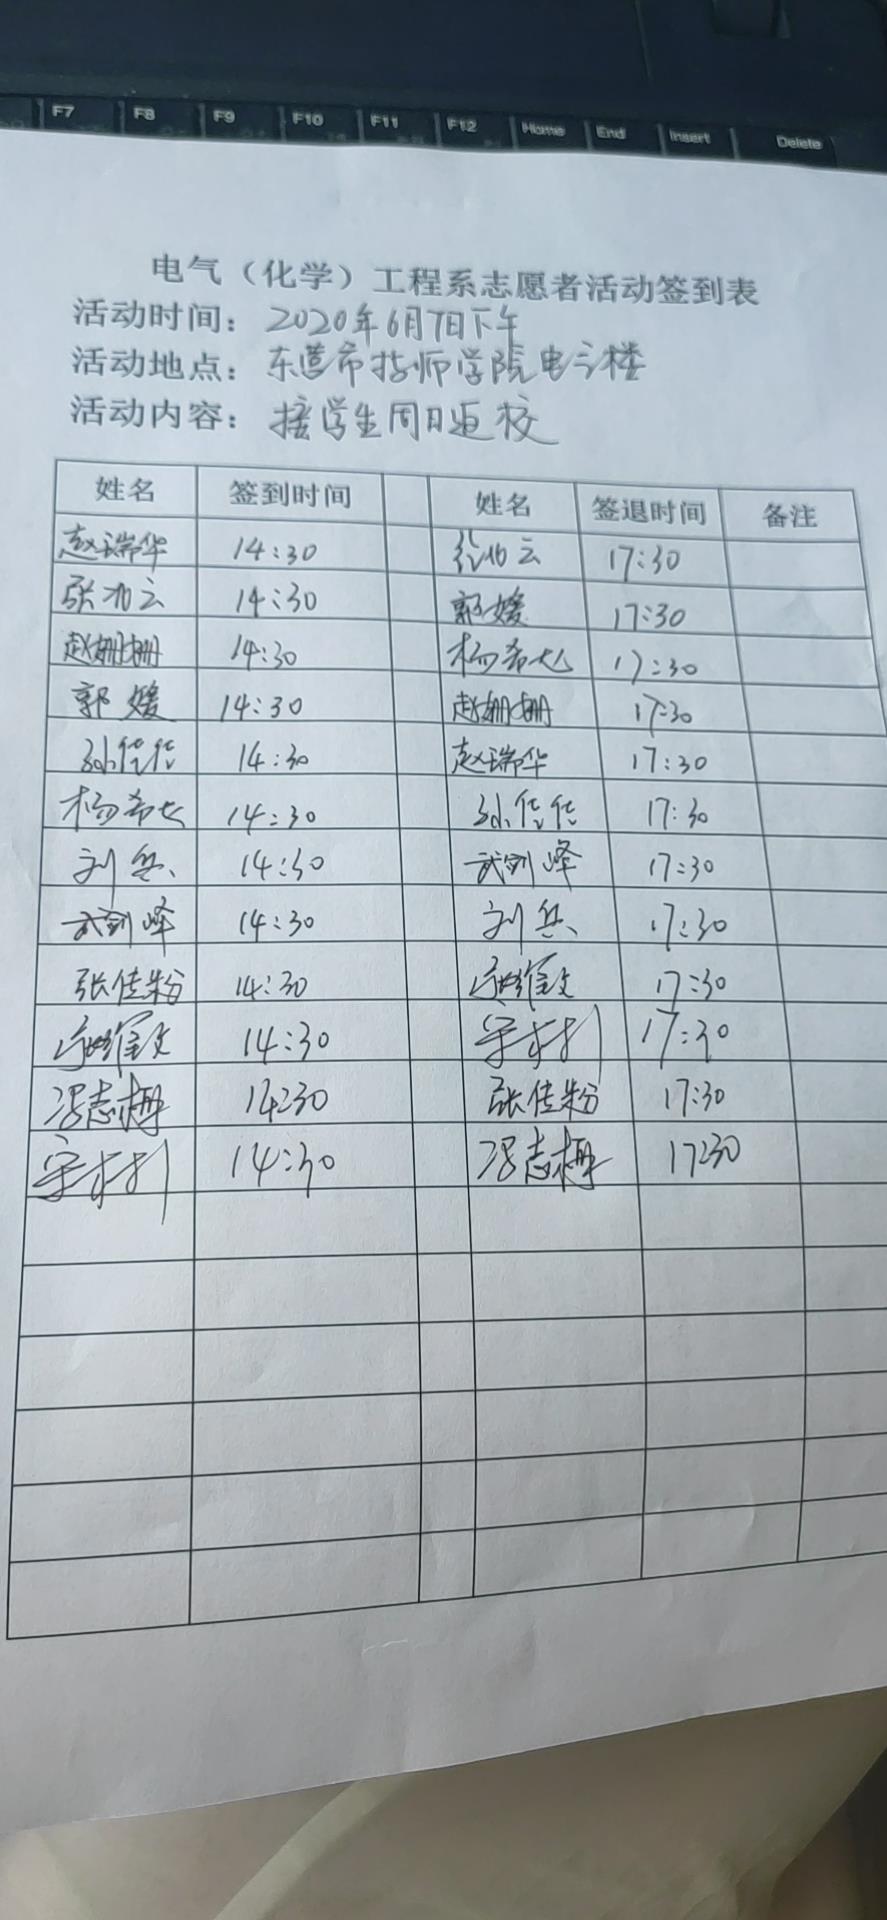 F7 F8 F9 F10 F11 F12 Home End Insert Delete
电气（化学）工程系志愿者活动签到表
活动时间：2020年6月7日下午
活动地点：东营市技师学院电气楼
活动内容：接学生周日返校
姓名 签到时间 姓名 签退时间 备注
赵瑞华 14:30 17:30
张 云 14:30 郭媛 17:30
赵姗姗 14:30 杨希 17:30
郭媛 14:30 赵姗姗 17:30
孙佳佳 14:30 赵瑞华 17:30
杨希 14:30 孙佳佳 17:30
刘兵 14:30 武剑峰 17:30
武剑峰 14:30 刘兵 17:30
张佳粉 14:30 17:30
14:30 17:30
冯志梅 14:30 张佳粉 17:30
14:30 冯志梅 17:30